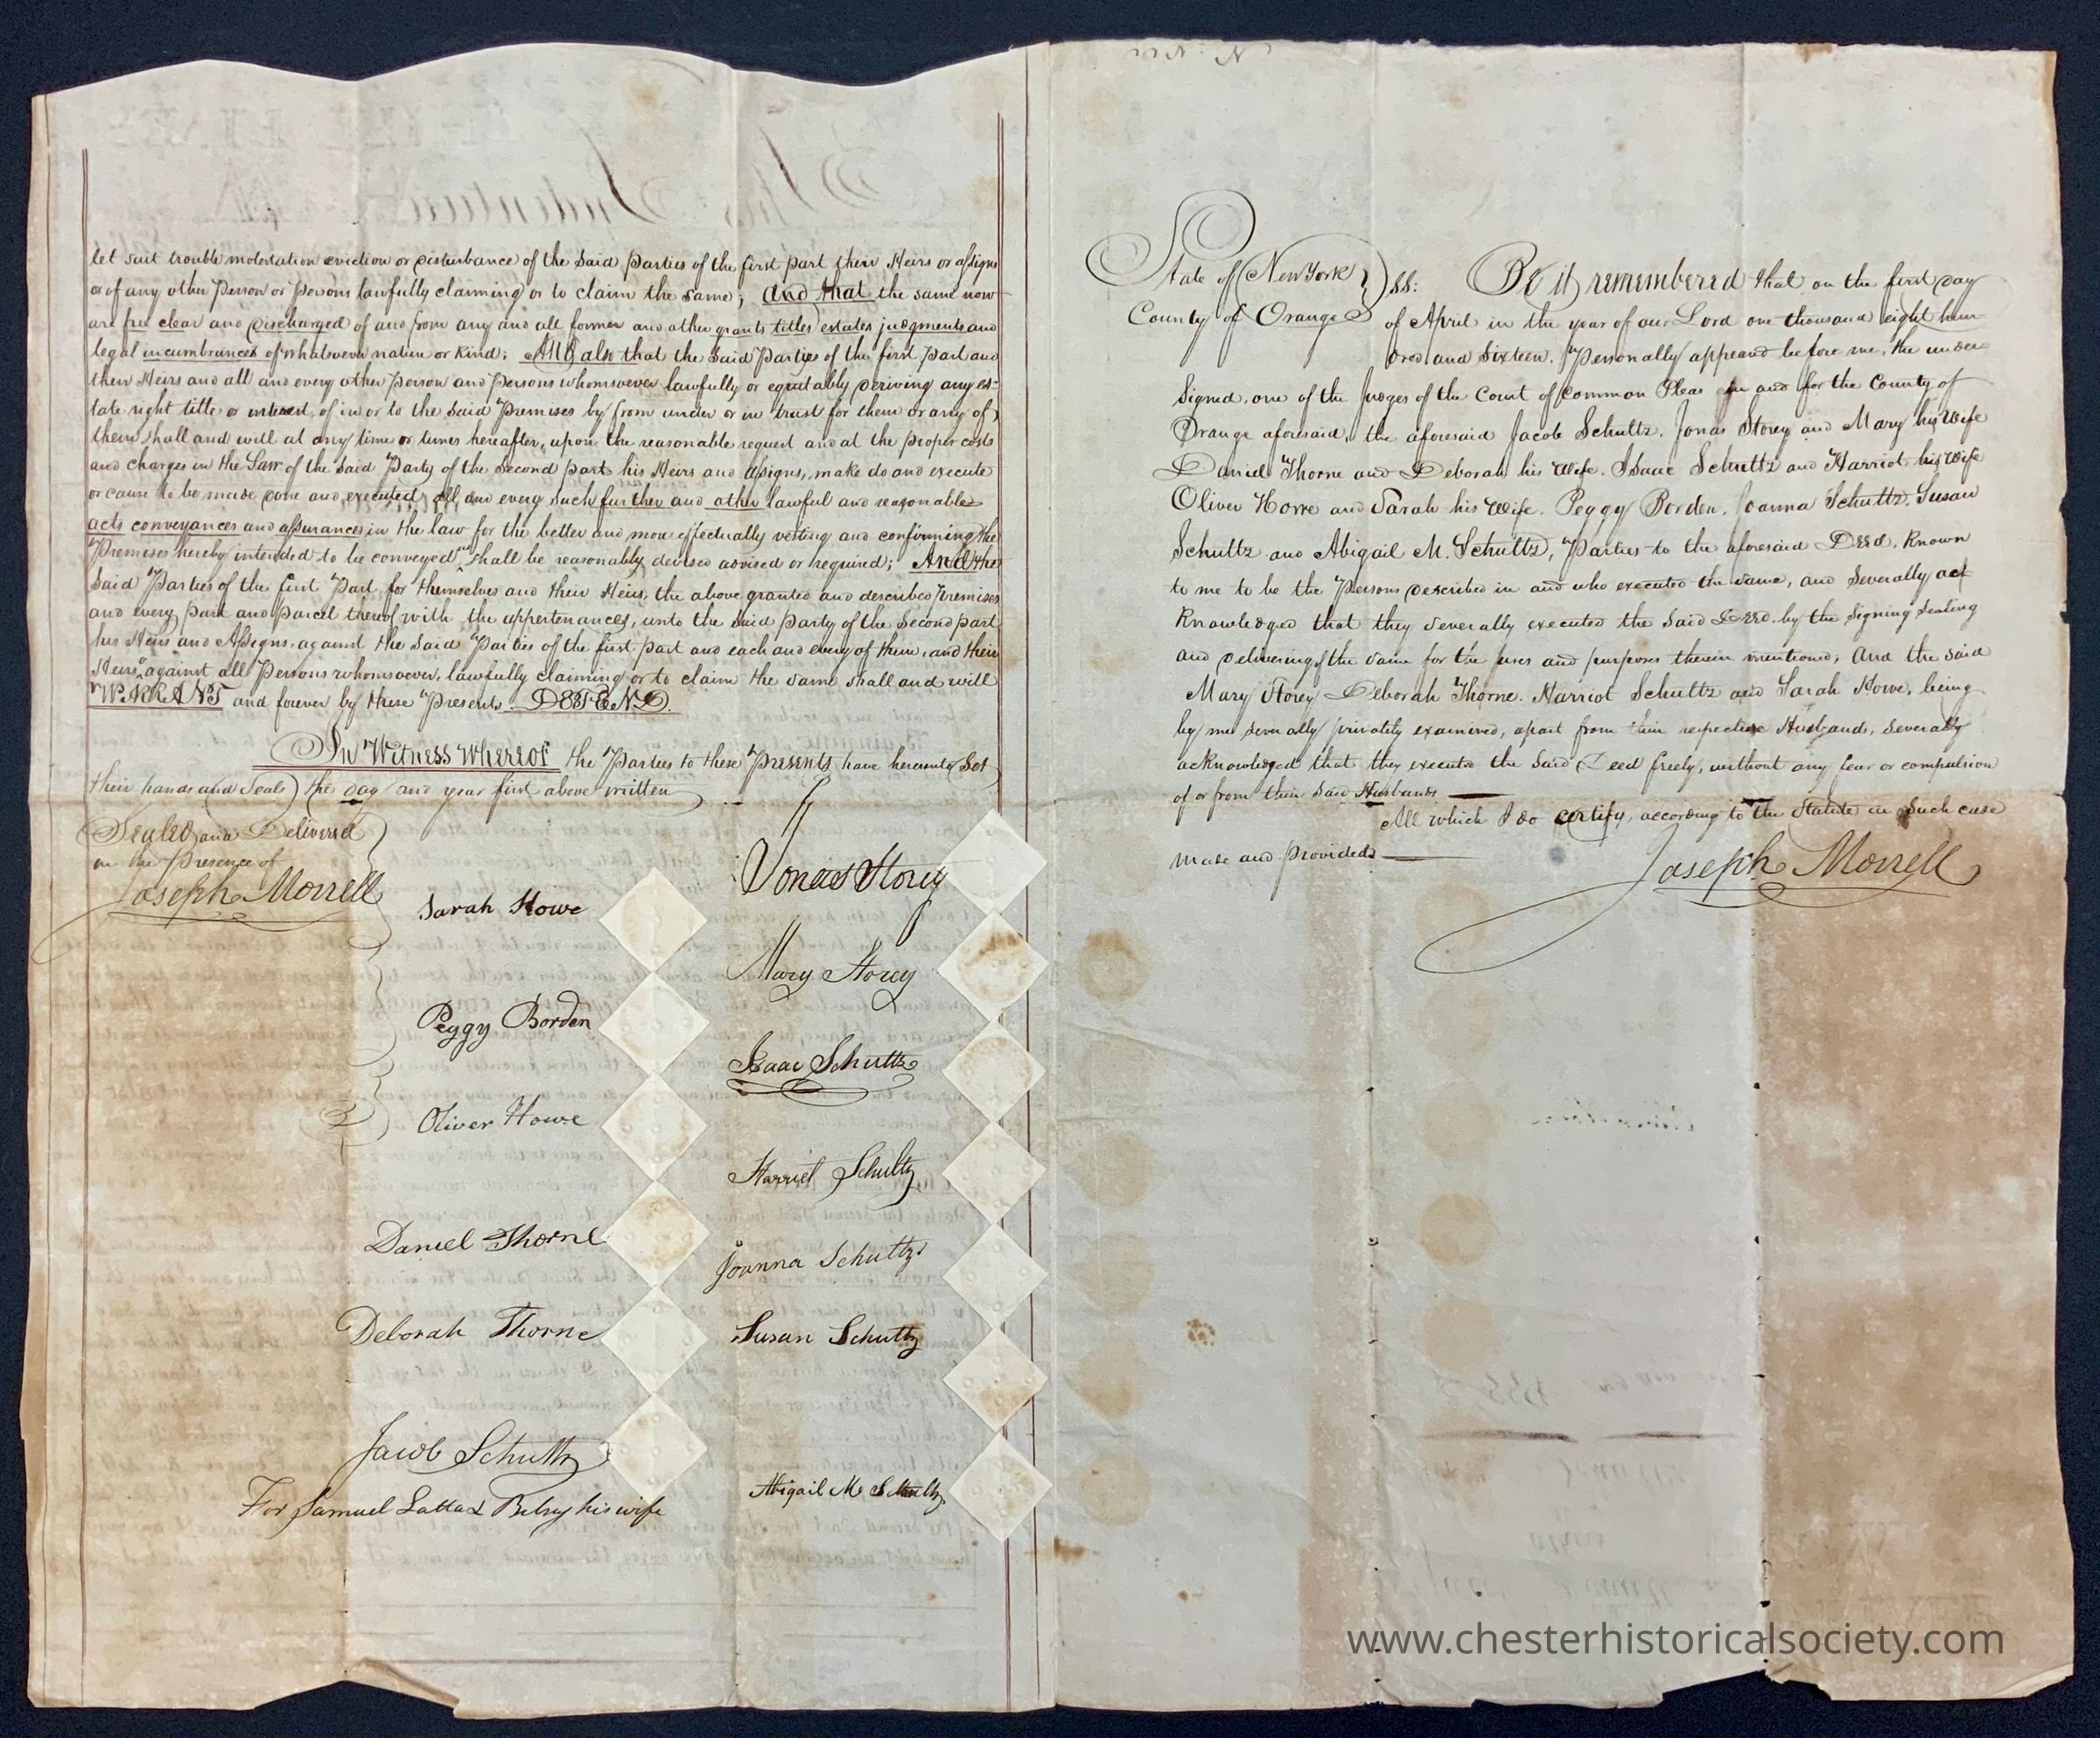 let suit trouble molestation eviction or disturbance of the said Parties of the first part their Heirs or assigns
or of any other Person or Persons lawfully claiming or to claim the same; And that the same now
are free clear and discharged of and from any and all former and other grants titles estates judgments and
legal incumbrances of whatsoever nature or kind; And also that the said Parties of the first Part and
their Heirs and all and every other Person and Persons whomsoever lawfully or equitably deriving any es-
tate right title or interest, of in or to the said Premises by from under or in trust for them or any of
them, shall and will at any time or times hereafter, upon the reasonable request and at the proper costs
and charges in the Law of the said Party of the second part his Heirs and Assigns, make do and execute
or cause to be made done and executed, all and every such further and other lawful and reasonable
acts conveyances and assurances in the law for the better and more effectually vesting and confirming the
Premises hereby intended to be conveyed, shall be reasonably devised advised or required; And the
said Parties of the first Part for themselves and their Heirs, the above granted and described Premises
and every part and parcel thereof with the appertenances, unto the said party of the second part
his Heirs and Assigns, against the said Parties of the first part and each and every of them, and their
Heirs, against all Persons whomsoever, lawfully claiming or to claim the same shall and will
WARRANT and forever by these Presents. DEFEND.
In Witness Whereof the Parties to these Presents, have hereunto set
their hands and Seals the day and year first above written
Sealed and Delivered
in the Presence of
Joseph Morrell
Sarah Howe
Peggy Borden
Oliver Howe
Daniel Thorne
Deborah Thorne
Jacob Schultz
For Samuel Latta & Betsy his wife
Jonas Storey
Mary Storey
Isaac Schultz
Harriet Schultz
Joanna Schultz
Susan Schultz
Abigail M Schultz
State of New York } ss: Be it remembered that on the first day
County of Orange of April in the year of our Lord one thousand eight hun-
dred and sixteen. Personally appeard before me, the under
Signed, one of the Judges of the Court of Common Pleas in and for the County of
Orange aforesaid, the aforesaid Jacob Schultz. Jonas Storey and Mary his Wife
Daniel Thorne and Deborah his Wife. Isaac Schultz and Harriot his Wife
Oliver Horre and Sarah his Wife. Peggy Borden. Joanna Schultz. Susan
Schultz and Abigail M. Schultz, Parties to the aforesaid Deed. Known
to me to be the Persons described in and who executed the same, and severally ack
Knowledged that they severally executed the said Deed. by the signing sealing
and delivering of the same for the uses and purposes therein mentioned; And the said
Mary Storey Deborah Thorne. Harriot Schultz and Sarah Howe, being
by me severally privately examined, apart from their respective Husbands, severally
acknowledged that they executed the said Deed freely, without any fear or compulsion
of or from their said Husbands.
All which I do certify, according to the Statute in such case
made and Provided.
Joseph Morrell
www.chesterhistoricalsociety.com